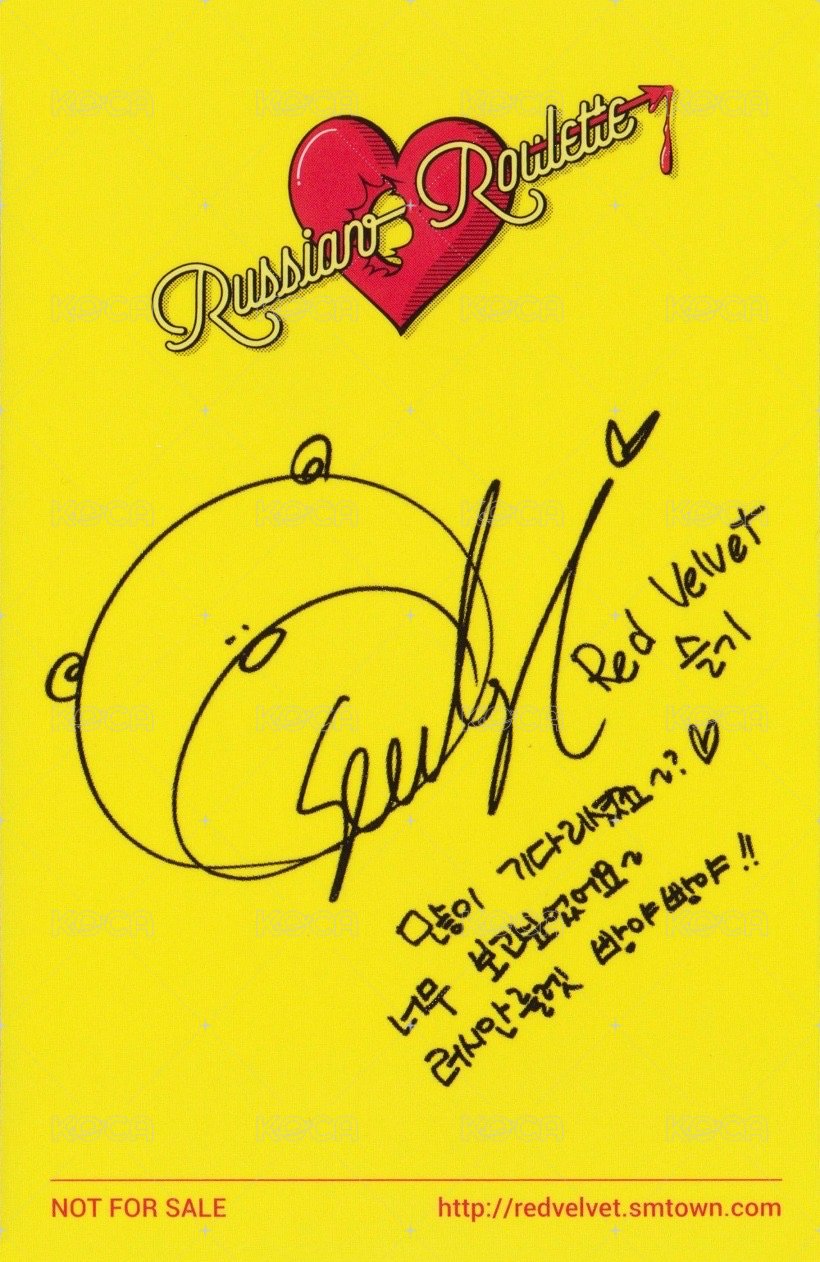 Russian Roulette
Seulgi
Red Velvet
슬기
많이 기다리셨죠~?♡
너무 보고싶었어요~
러시안 룰렛 빵야빵야!!
NOT FOR SALE
http://redvelvet.smtown.com
KOCA